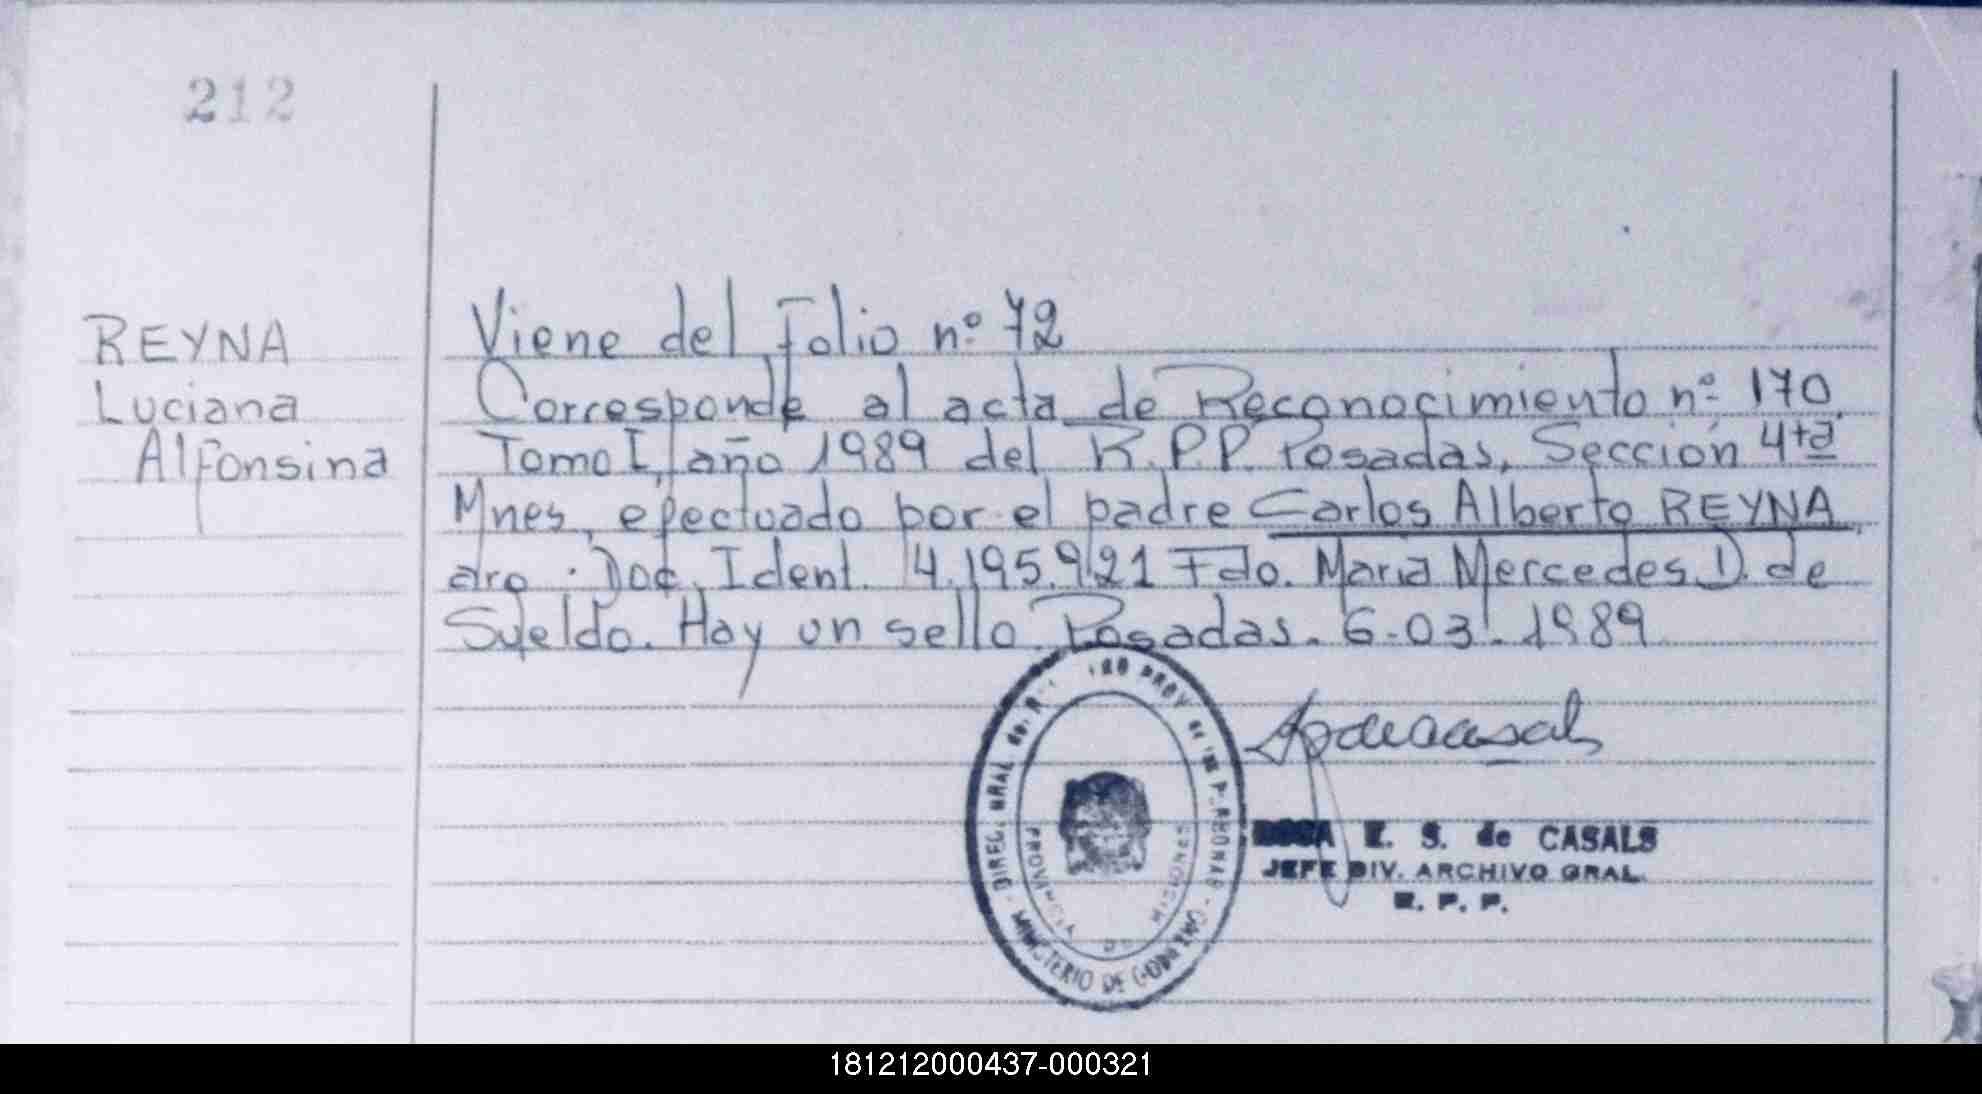 212
REYNA
Luciana
Alfonsina
Viene del Folio nº 72
Corresponde al acta de Reconocimiento nº 170
Tomo I, año 1989 del R.P.P. Posadas, Sección 4ta
Mnes, efectuado por el padre Carlos Alberto REYNA,
arg. Doc. Ident. 4.195.921 Fdo. Maria Mercedes D. de
Sueldo. Hay un sello Posadas. 6-03-1989
PROV de las PERSONAS
MINISTERIO DE GOBIERNO
PROVINCIA DE MISIONES
E. S. de CASALS
JEFE DIV. ARCHIVO GRAL.
R. P. P.
181212000437-000321